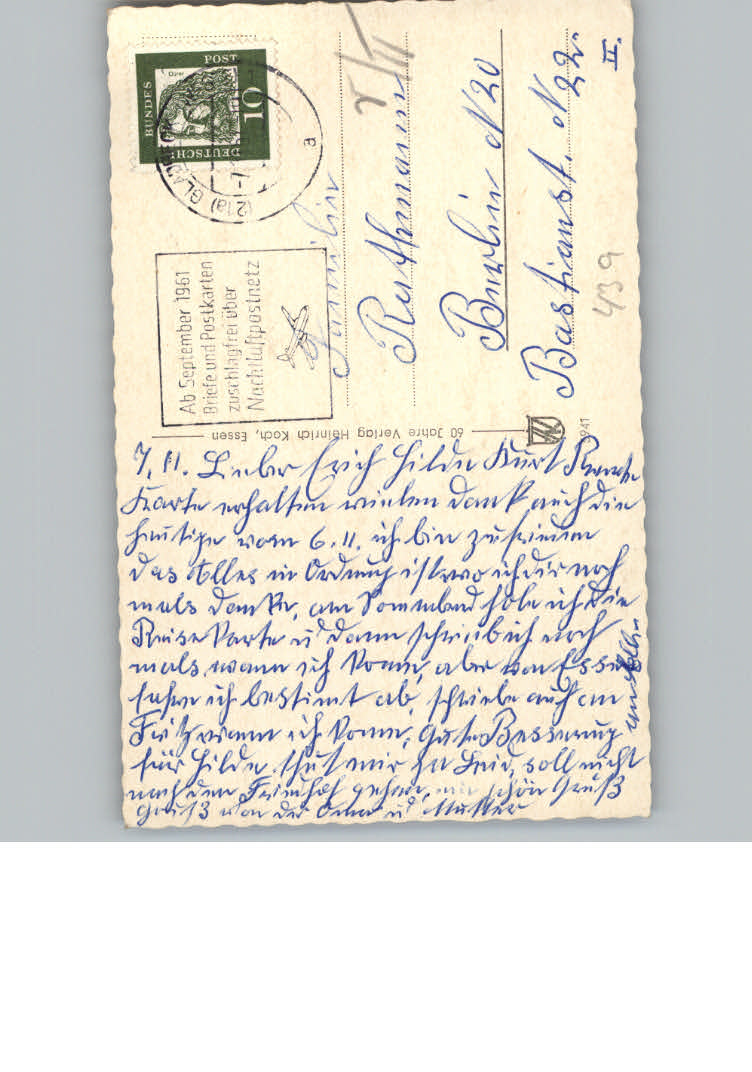 DEUTSCHE
BUNDES
POST
10
Dürer
(21a) GLADBECK
a
Ab September 1961
Briefe und Postkarten
zuschlagfrei über
Nachtluftpostnetz
Familie
Ruthmann
Berlin N 20
Bastianst. N 22
II.
439
60 Jahre Verlag Heinrich Koch, Essen
7.11. Lieber Erich Hilde Kurt
Karte erhalten vielen Dank auch die
heutige vom 6.11. ich bin zufrieden
das Alles in Ordnung ist wo ich dir noch
mals danke, am Sonnabend hole ich die
Reise Karte u dann schreib ich noch
mals wann ich komm, aber von Essen
fahre ich bestimt ab, schreibe auch an
Fritz wann ich komm, Gute Besserung
für Hilde, thut mir zu Leid, soll nicht
nach den Friedhof gehen, schön Gruß
Gruß von der Oma u Mutter
an Alle